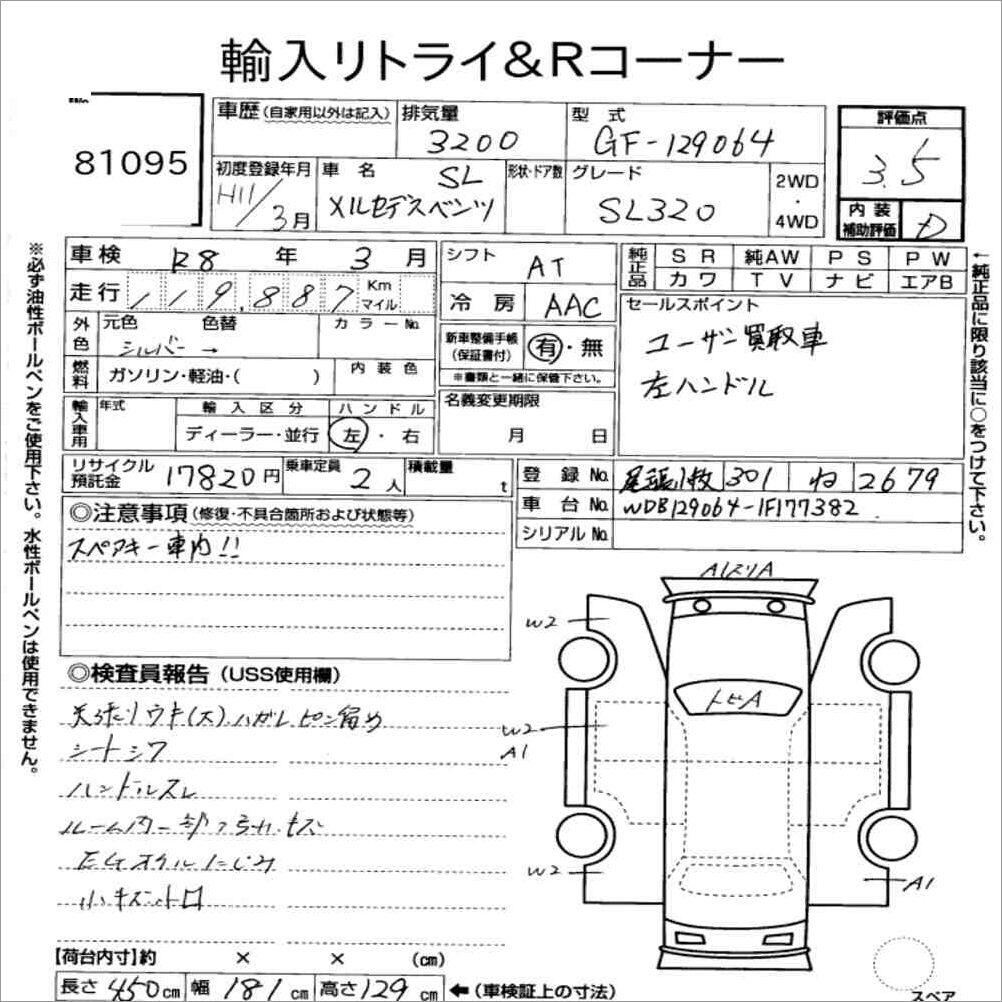 輸入リトライ&Rコーナー
81095
車歴 (自家用以外は記入)
排気量
3200
型式
GF-129064
評価点
3.5
初度登録年月
H11/3月
車名
SL
メルセデスベンツ
形状・ドア数
グレード
SL320
2WD
・
4WD
内装
補助評価
D
車検 R8年 3月
走行 119,887 Km
マイル
シフト
AT
冷房
AAC
純正品
SR 純AW PS PW
カワ TV ナビ エアB
外色
元色 色替
シルバー →
カラーNo.
燃料
ガソリン・軽油・( )
内装色
新車整備手帳
(保証書付)
有・無
※書類と一緒に保管下さい。
セールスポイント
ユーザー買取車
左ハンドル
輸入車用
年式
輸入区分
ディーラー・並行
ハンドル
左・右
名義変更期限
月 日
リサイクル
預託金
17820円
乗車定員
2人
積載量
t
登録No. 尾張小牧 301 ね 2679
車台No. WDB129064-1F177382
シリアルNo.
◎注意事項 (修復・不具合箇所および状態等)
スペアキー車内!!
◎検査員報告 (USS使用欄)
天張リウキ(大)ハガレピン留め
シートシワ
ハンドルスレ
ルーム内一部つめれ キズ
EGオイルにじみ
小キズ凹
A1スリA
W2
トビA
W2
A1
W2
A1
【荷台内寸】約 × × (cm)
長さ 450cm 幅 181cm 高さ 129cm ←(車検証上の寸法)
スペア
※必ず油性ボールペンをご使用下さい。水性ボールペンは使用できません。
←純正品に限り該当に○をつけて下さい。